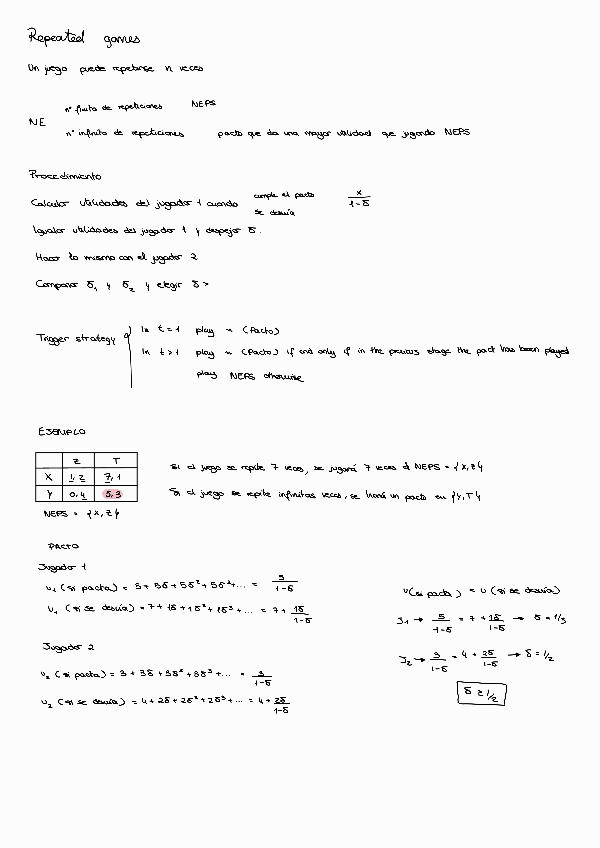 Repeated games
Un juego puede repetirse n veces
nº finito de repeticiones NEPS
NE
nº infinito de repeticiones pacto que da una mayor utilidad que jugando NEPS
Procedimiento
Calcular utilidades del jugador 1 cuando cumple el pacto x/(1-δ)
se desvía
Igualar utilidades del jugador 1 y despejar δ.
Hacer lo mismo con el jugador 2
Comparar δ₁ y δ₂ y elegir δ >
Trigger strategy
In t=1 play ~ (Pacto)
In t>1 play ~ (Pacto) if and only if in the previous stage the pact has been played
play NEPS otherwise
EJEMPLO
Z T
X 1,2 7,1
Y 0,4 5,3
NEPS = {X,Z}
Si el juego se repite 7 veces, se jugará 7 veces el NEPS = {X,Z}
Si el juego se repite infinitas veces, se hará un pacto en {Y,T}
PACTO
Jugador 1
u₁ (si pacta) = 5+5δ+5δ²+5δ³+... = 5/(1-δ)
u₁ (si se desvía) = 7+1δ+1δ²+1δ³+... = 7+ 1δ/(1-δ)
Jugador 2
u₂ (si pacta) = 3+3δ+3δ²+3δ³+... = 3/(1-δ)
u₂ (si se desvía) = 4+2δ+2δ²+2δ³+... = 4+ 2δ/(1-δ)
u(si pacta) = u (si se desvía)
J₁ → 5/(1-δ) = 7+ 1δ/(1-δ) → δ = 1/3
J₂ → 3/(1-δ) = 4+ 2δ/(1-δ) → δ = 1/2
δ ≥ 1/2